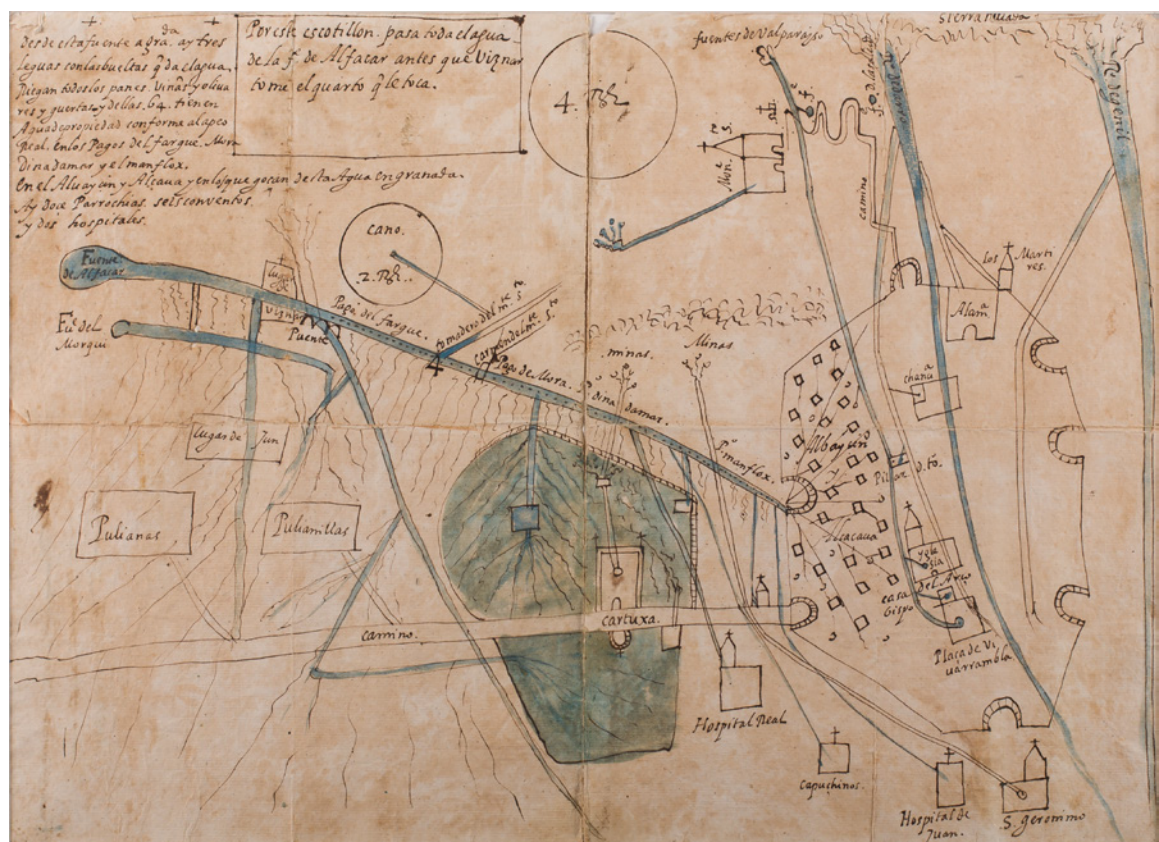 Desde esta fuente a gra.da ay tres
leguas con las bueltas q̃ da el agua.
Riegan todos los panes. viñas y oliua
res y guertas, y dellas. 64. tienen
Agua de propiedad conforme al apeo
Real. en los Pagos del fargue. Mora
Dinadamar y el manflox.
en el Aluayçin y Alcaçaua y en los que gocan desta Agua en granada.
Ay Doce Parrochias. seis conventos.
y dos hospitales.
Por este escotillon. pasa toda el agua
de la f.te de Alfacar antes que Viznar
tome el quarto q̃ le toca.
4. R.s
fuentes de Valparayso
sierra nevada
R. de genil
camino
Mon.te s.to
cano.
2. R.s.
Fuente
de Alfacar
Fu.te del
Morqui
lugar
viznar
Puente
Pago del fargue.
tomadero del m.te s.to
carmen del m.te s.to
4
Pago de Mora.
P.o dinadamar.
P.o manflox.
minas.
Minas
los Marti
res.
Alam.a
chanc.a
Albayçin
Pilar d. to.
Alcaçaua
ygle
sia
casa del Arço
bispo
Plaça de Vi
uarrambla
lugar de Jun
Pulianas
Pulianillas
camino.
cartuxa.
Hospital Real
capuchinos.
Hospital de
Juan.
S. geronimo